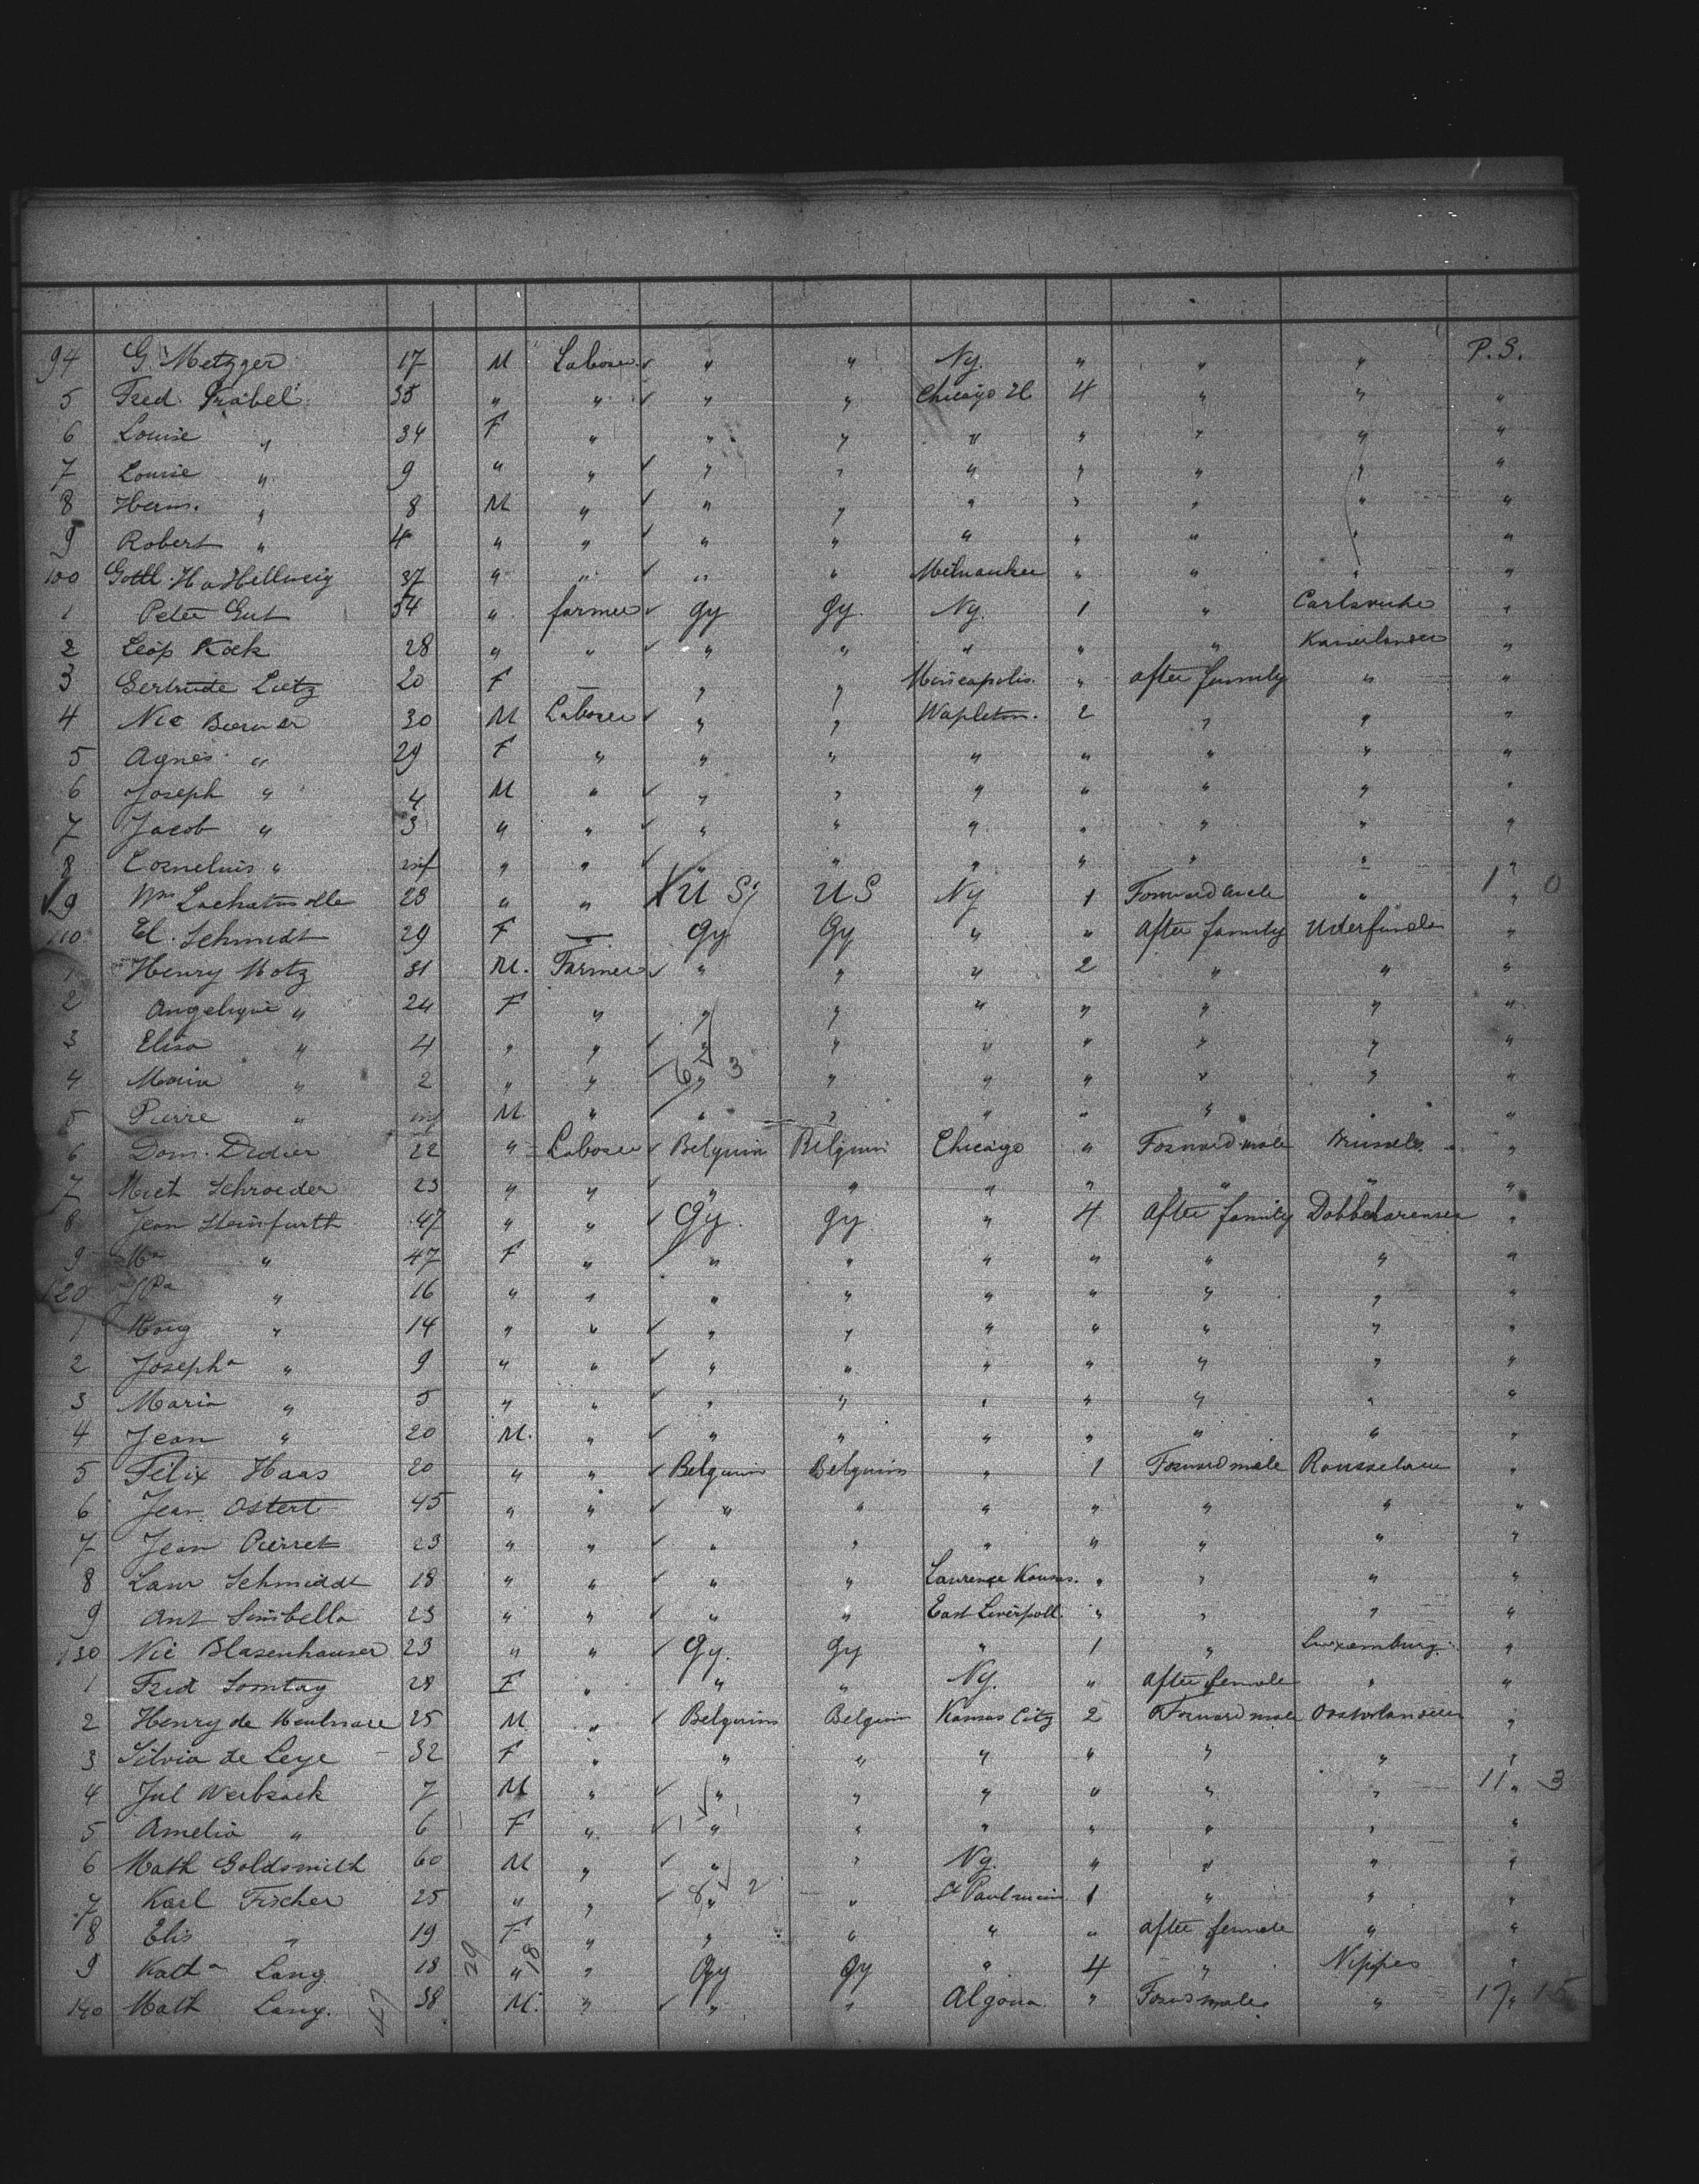 94 G. Metzger 17 M Laborer " " Ny. " " " P.S.
5 Fred. 35 " " " " Chicago Il 4 " " "
6 Louise " 34 F " " " " " " " "
7 Louise " 9 " " " " " " " " "
8 Herm. " 8 M " " " " " " " "
9 Robert " 4 " " " " " " " " "
100 Gottl. Hellweig 37 " " " " Milwaukee " " " "
1 Peter Gut 54 " farmer gy gy. Ny. 1 " Carlsruhe "
2 Leop Kock 28 " " " " " " " "
3 Gertrude Lietz 20 F — " " Mineapolis. " after family " "
4 Nic 30 M Laborer " " Mapleton. 2 " " "
5 Agnes " 29 F " " " " " " " "
6 Joseph " 4 M " " " " " " " "
7 Jacob " 3 " " " " " " " " "
8 Cornelius " inf " " " " " " " " "
9 28 " " U S US Ny 1 " " 1 0
110 El. Schmidt 29 F — gy Gy " " After family "
1 Henry Motz 31 M. Farmer " " " 2 " " "
2 Angelique " 24 F " " " " " " " "
3 Elisa " 4 " " " " " " " " "
4 Maria " 2 " " " " " " " " " 6 3
5 Pierre " inf M " " " " " " " "
6 Dom. Didier 22 " Laborer Belguim Belguim Chicago " Forward male Brussels "
7 Schroeder 23 " " " " " " " " "
8 Jean Steinfurth 47 " " Gy. gy. " 4 after family "
9 Ma " 47 F " " " " " " " "
120 " 16 " " " " " " " " "
1 " 14 " " " " " " " " "
2 Josepha " 9 " " " " " " " " "
3 Maria " 5 " " " " " " " " "
4 Jean " 20 M. " " " " " " " "
5 Felix Haas 20 " " Belguim Belguim " 1 Forward male "
6 Jean Ostert 45 " " " " " " " " "
7 Jean Pierret 23 " " " " " " " " "
8 Laur Schmiddt 18 " " " " Lawrence Kansas. " " " "
9 Ant Simibella 23 " " " " East Liverpoll. " " " "
130 Nic Blasenhauser 23 " " Gy. gy " 1 " Luxemburg. "
1 Frid Somtag 28 F " " " Ny. " after female " "
2 Henry de 25 M " Belguim Belguim Kansas City 2 Forward male "
3 Silvia de Leye 32 F " " " " " " " "
4 Jul Werbrock 7 M " " " " " " " 11 " 3
5 Amelia " 6 F " " " " " " " "
6 Math Goldsmith 60 M " " " Ny. " " " "
7 Karl Fischer 25 " " 8 2 " St Paul 1 " " "
8 Elis " 19 F " " " " " after female " "
9 Katha Lang 18 29 " 18 " Gy gy " 4 " Nippes "
140 Math Lang. 47 38 M. " " " Algona " " 17 " 15